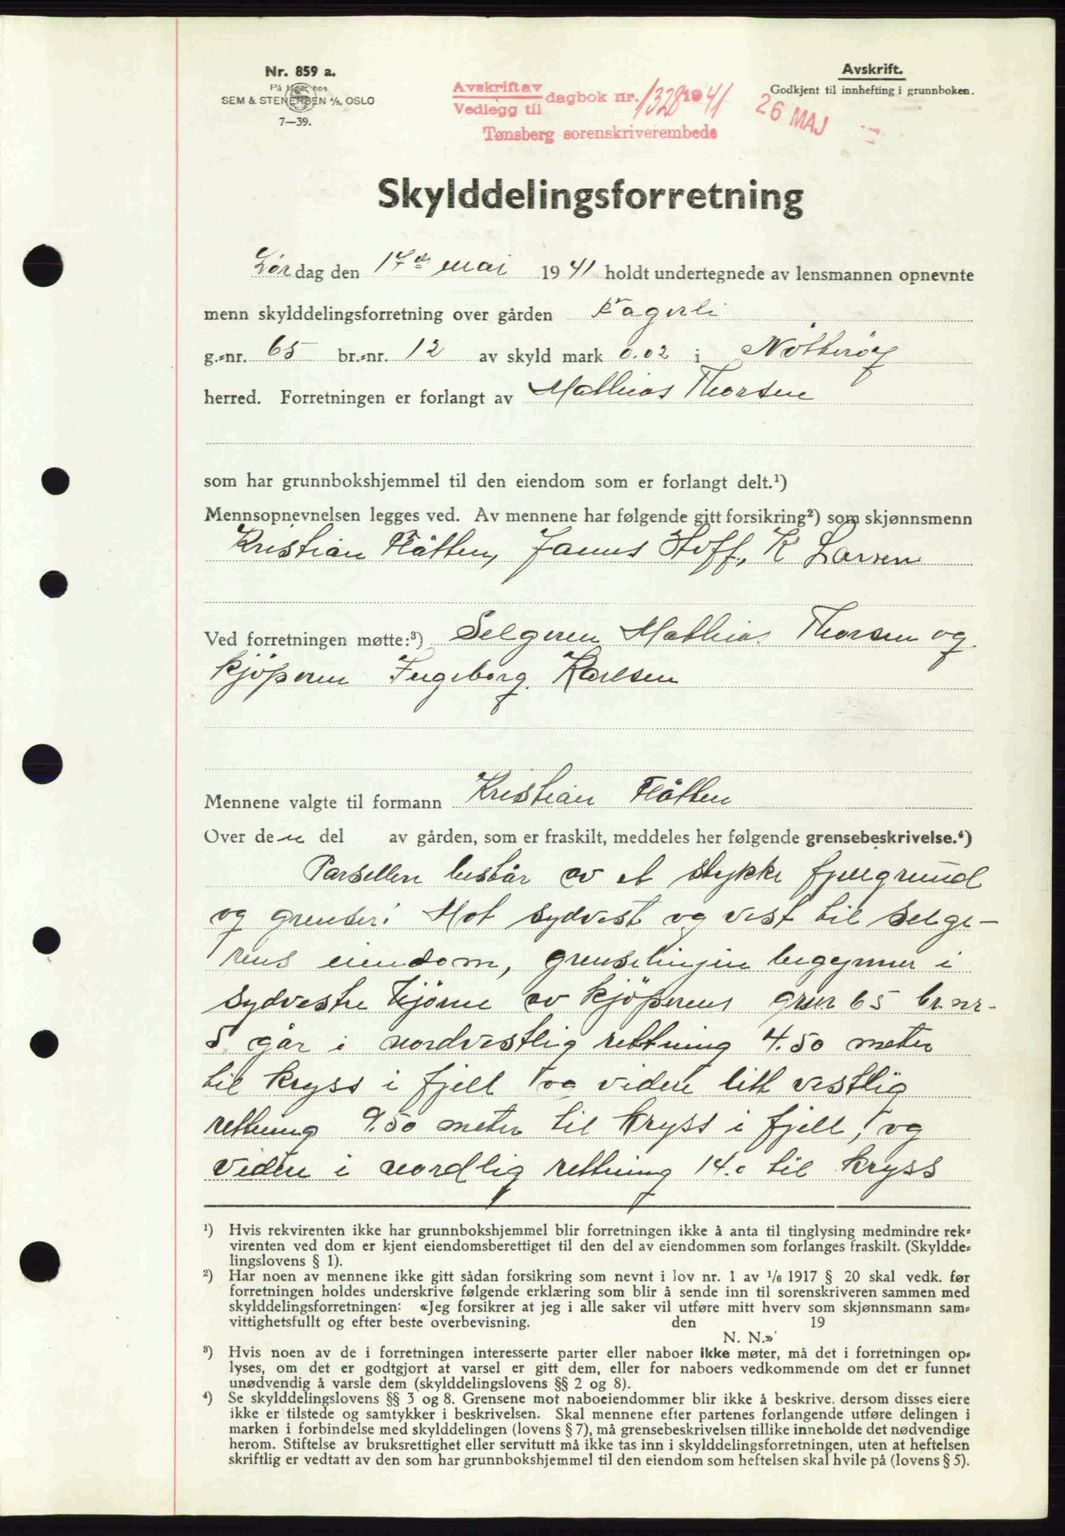 Nr. 859 a.
På lager hos
SEM & STENERSEN A/S, OSLO
7—39.
Avskrift av
Vedlegg til
dagbok nr. 1328 1941
Tønsberg sorenskriverembede
Avskrift.
Godkjent til innhefting i grunnboken.
26 MAJ
Skylddelingsforretning
Lørdag den 17de mai 1941 holdt undertegnede av lensmannen opnevnte
menn skylddelingsforretning over gården Fagerli
g.-nr. 65 br.-nr. 12 av skyld mark 0.02 i Nøtterøy
herred. Forretningen er forlangt av Mathias Thorsen
som har grunnbokshjemmel til den eiendom som er forlangt delt.¹)
Mennsopnevnelsen legges ved. Av mennene har følgende gitt forsikring²) som skjønnsmenn
Kristian Flåtten, Hoff, K Larsen
Ved forretningen møtte:³) Selgeren Mathias Thorsen og
kjöperen Ingeborg Karlsen
Mennene valgte til formann Kristian Flåtten
Over den del av gården, som er fraskilt, meddeles her følgende grensebeskrivelse.⁴)
Parsellen består av et stykke fjellgrund
og grenser: Mot sydvest og vest til selge-
rens eiendom, grenselinjen begynner i
sydvestre hjörne av kjöperens gnr 65 br.nr.
5 går i nordvestlig rettning 4.50 meter
til kryss i fjell og videre litt vestlig
rettning 9.50 meter til kryss i fjell, og
videre i nordlig rettning 14.0 til kryss
¹) Hvis rekvirenten ikke har grunnbokshjemmel blir forretningen ikke å anta til tinglysing medmindre rek-
virenten ved dom er kjent eiendomsberettiget til den del av eiendommen som forlanges fraskilt. (Skyldde-
lingslovens § 1).
²) Har noen av mennene ikke gitt sådan forsikring som nevnt i lov nr. 1 av 1/6 1917 § 20 skal vedk. før
forretningen holdes underskrive følgende erklæring som blir å sende inn til sorenskriveren sammen med
skylddelingsforretningen: «Jeg forsikrer at jeg i alle saker vil utføre mitt hverv som skjønnsmann sam-
vittighetsfullt og efter beste overbevisning. den 19
N. N.»
³) Hvis noen av de i forretningen interesserte parter eller naboer ikke møter, må det i forretningen op-
lyses, om det er godtgjort at varsel er gitt dem, eller for naboers vedkommende om det er funnet
unødvendig å varsle dem (skylddelingslovens §§ 2 og 8).
⁴) Se skylddelingslovens §§ 3 og 8. Grensene mot naboeiendommer blir ikke å beskrive, dersom disses eiere
ikke er tilstede og samtykker i beskrivelsen. Skal mennene efter partenes forlangende utføre delingen i
marken i forbindelse med skylddelingen (lovens § 7), må grensebeskrivelsen tillike inneholde det nødvendige
herom. Stiftelse av bruksrettighet eller servitutt må ikke tas inn i skylddelingsforretningen, uten at heftelsen
skriftlig er vedtatt av den som har grunnbokshjemmel til den eiendom som heftelsen skal hvile på (lovens § 5).